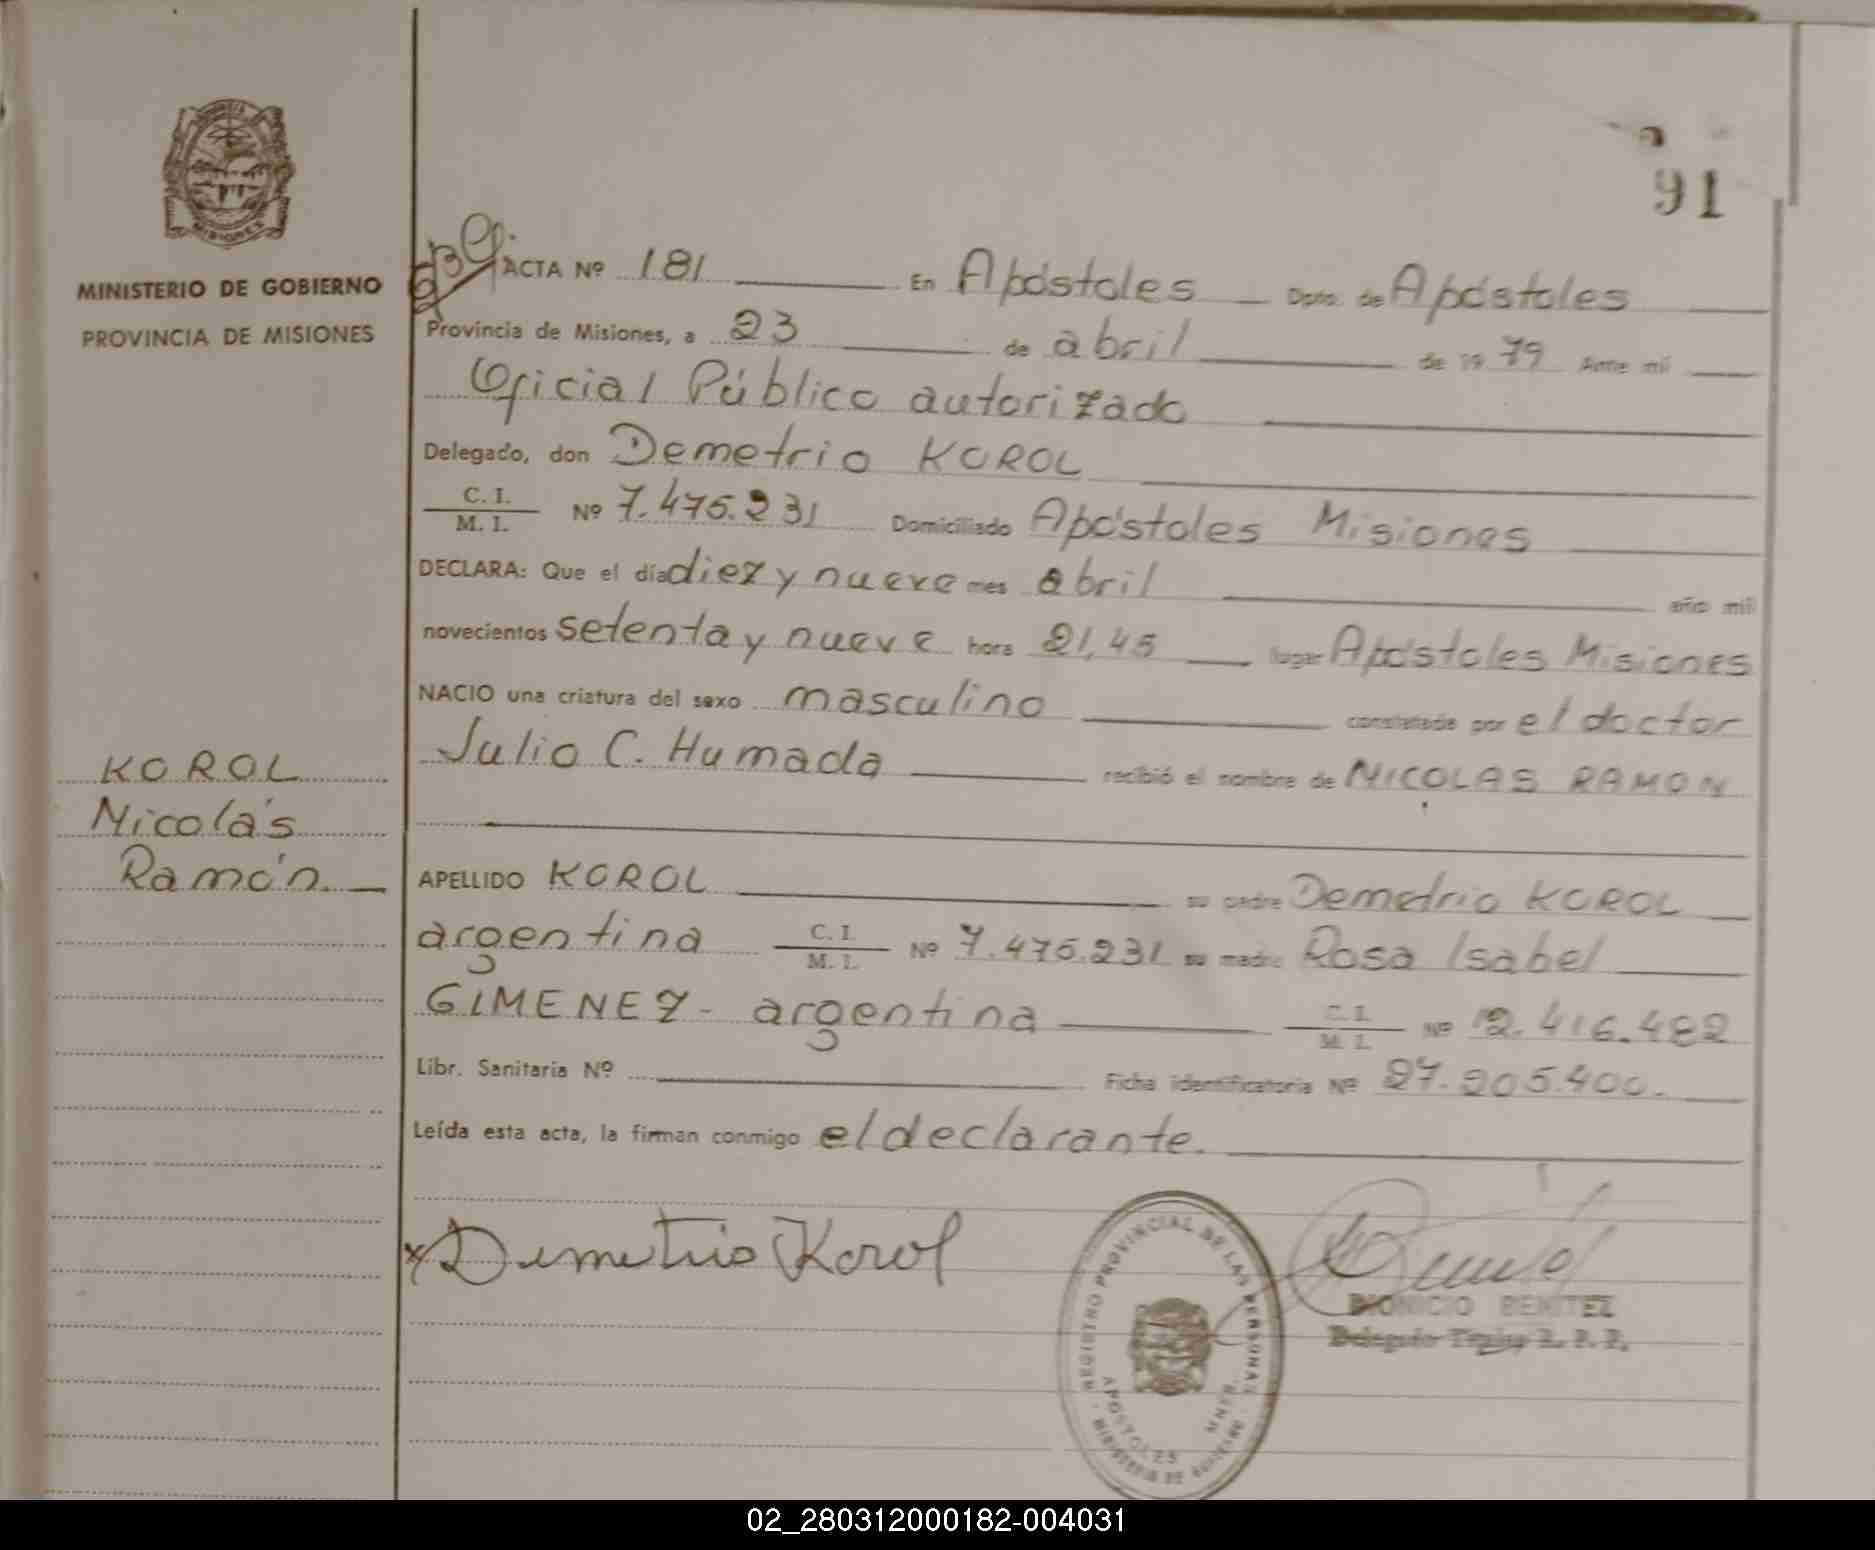 91
MINISTERIO DE GOBIERNO
PROVINCIA DE MISIONES
ACTA Nº 181 En Apóstoles Dpto. de Apóstoles
Provincia de Misiones, a 23 de abril de 19 79 Ante mí
Oficial Público autorizado
Delegado, don Demetrio KOROL
C. I.
M. I. Nº 7.475.231 Domiciliado Apóstoles Misiones
DECLARA: Que el día diez y nueve mes abril año mil
novecientos setenta y nueve hora 21,45 lugar Apóstoles Misiones
NACIO una criatura del sexo masculino constatada por el doctor
Julio C. Humada recibió el nombre de NICOLAS RAMON
KOROL
Nicolás
Ramón.
APELLIDO KOROL su padre Demetrio KOROL
argentina C. I. M. I. Nº 7.475.231 su madre Rosa Isabel
GIMENEZ - argentina C. I. M. I. Nº 12.416.482
Libr. Sanitaria Nº Ficha identificatoria Nº 27.205.400.
Leída esta acta, la firman conmigo el declarante.
x Demetrio Korol
REGISTRO PROVINCIAL DE LAS PERSONAS
APOSTOLES
MINISTERIO DE GOBIERNO
DIONICIO BENITEZ
Delegado Titular R. P. P.
MISIONES
02_280312000182-004031